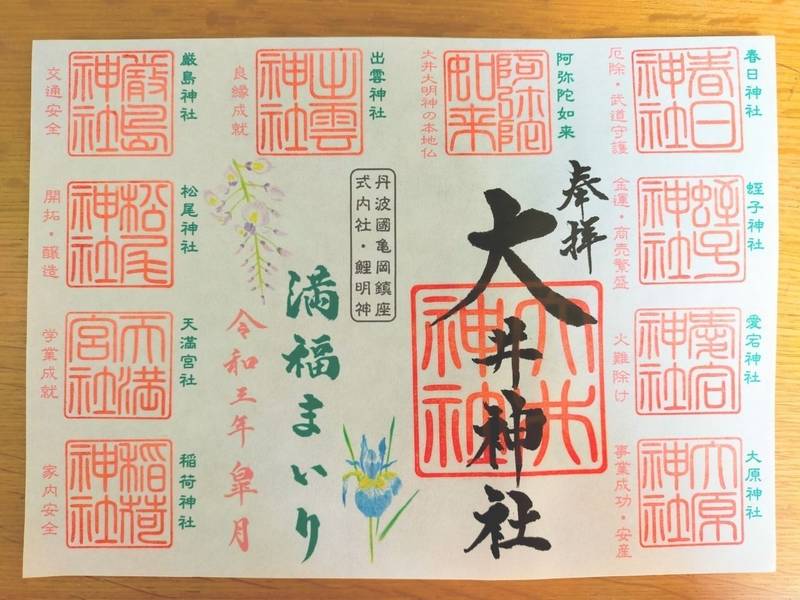 春日神社
春日神社
厄除・武道守護
蛭子神社
蛭子神社
金運・商売繁盛
愛宕神社
愛宕神社
火難除け
大原神社
大原神社
事業成功・安産
阿弥陀如来
阿弥陀如来
大井大明神の本地仏
奉拝
大井神社
大井神社
丹波國亀岡鎮座
式内社・鯉明神
満福まいり
令和三年 皐月
出雲神社
出雲神社
良縁成就
厳島神社
厳島神社
交通安全
松尾神社
松尾神社
開拓・醸造
天満宮社
天満宮社
学業成就
稲荷神社
稲荷神社
家内安全